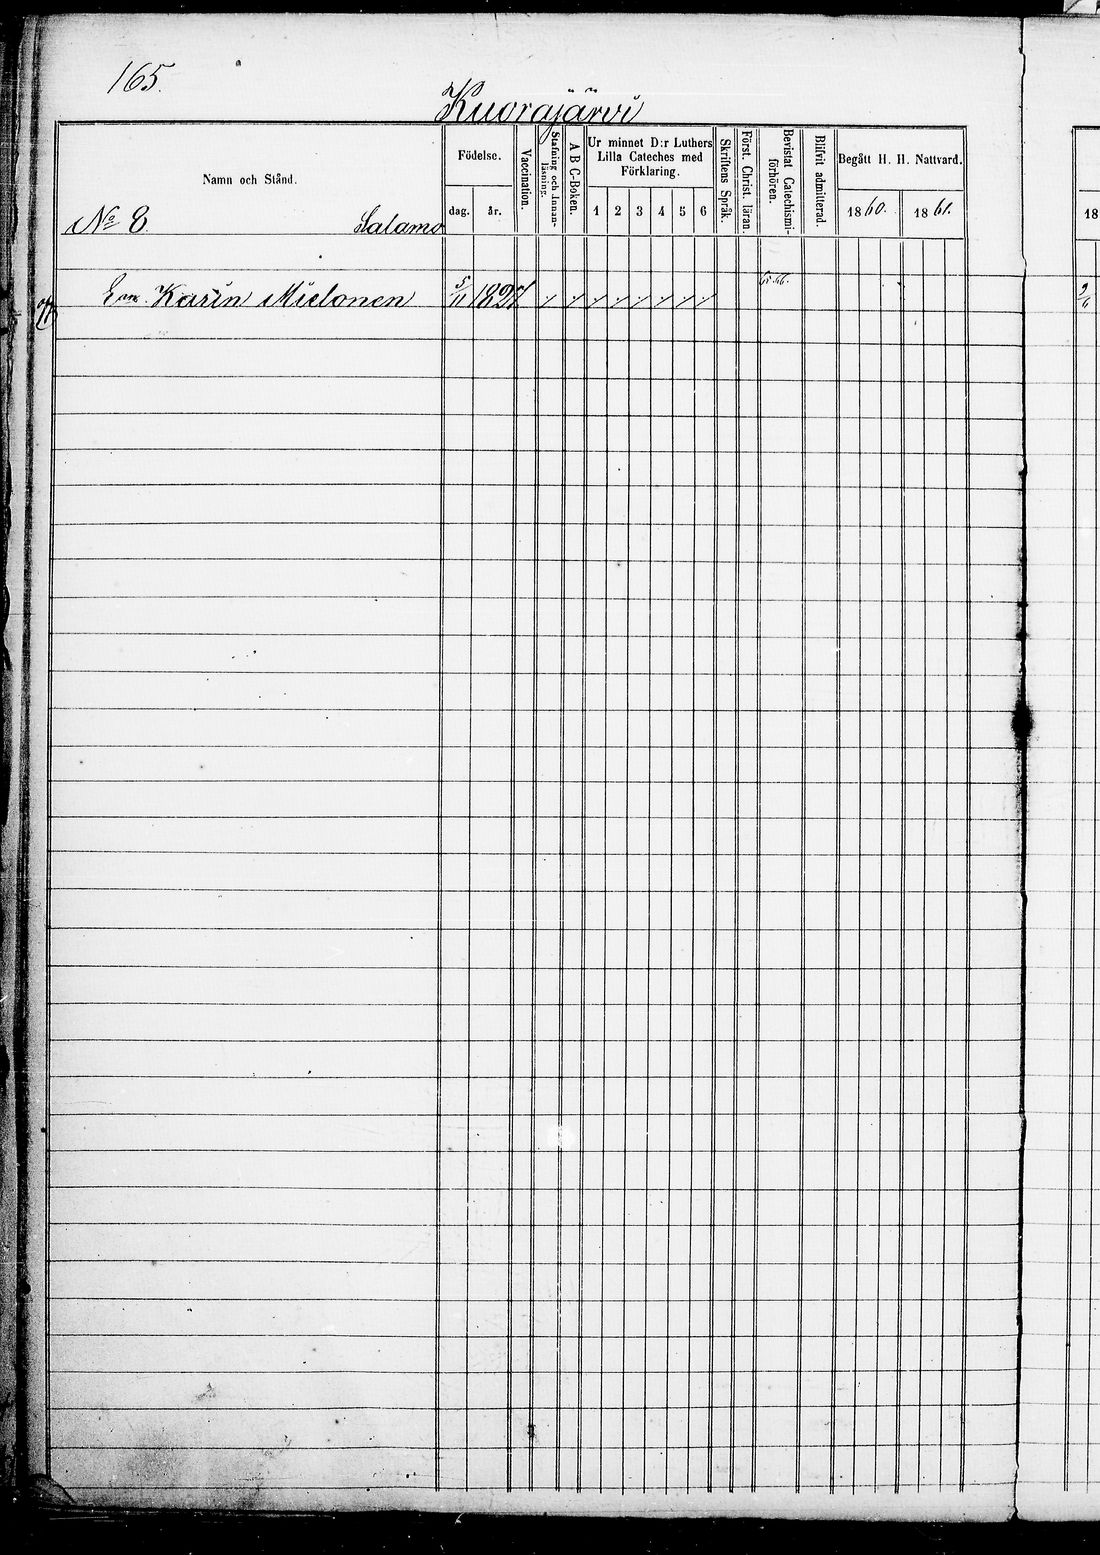 165.
Kuorajärvi
Namn och Stånd.
Födelse.
dag.
år.
Vaccination.
Stafning och Innan-
läsning.
A B C-Boken.
Ur minnet D:r Luthers
Lilla Cateches med
Förklaring.
1 2 3 4 5 6
Skriftens Språk.
Först. Christ. läran.
Bevistat Catechismi-
förhören.
Blifvit admitterad.
Begått H. H. Nattvard.
1860. 1861.
18
No 8. Salamo
65.66.
Karin Mielonen 5/11 1827
9/6